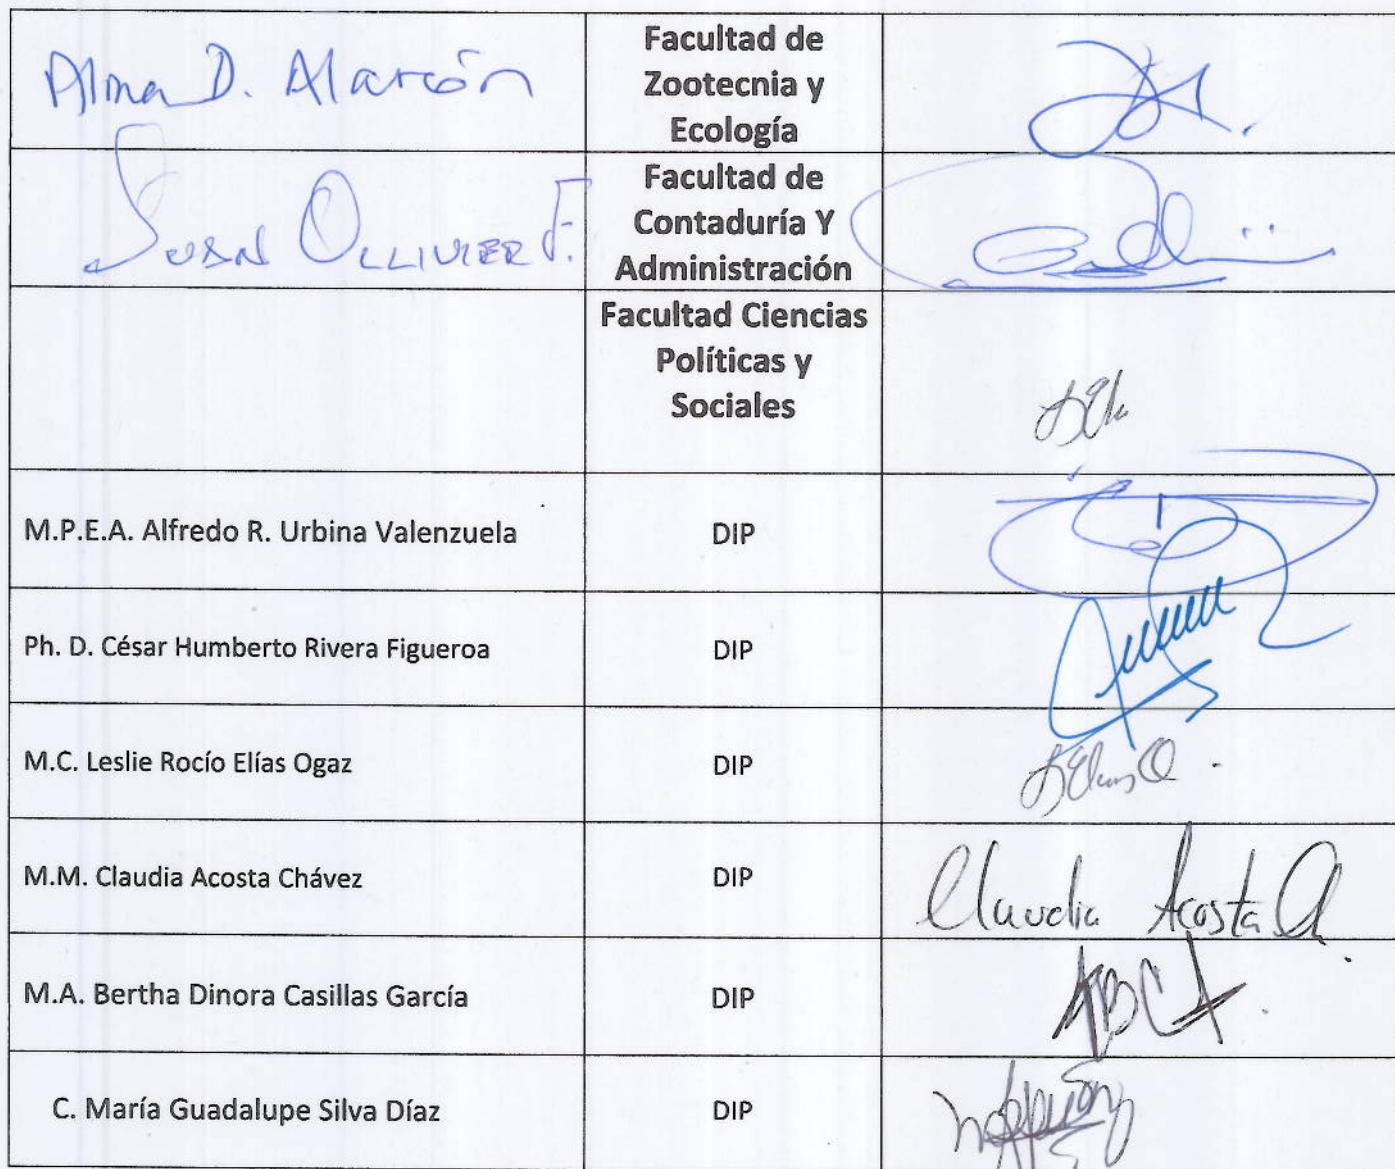 Alma D. Alarcón
Facultad de
Zootecnia y
Ecología
Juan Ollivier F.
Facultad de
Contaduría Y
Administración
Facultad Ciencias
Políticas y
Sociales
M.P.E.A. Alfredo R. Urbina Valenzuela DIP
Ph. D. César Humberto Rivera Figueroa DIP
M.C. Leslie Rocío Elías Ogaz DIP
M.M. Claudia Acosta Chávez DIP Claudia Acosta Ch.
M.A. Bertha Dinora Casillas García DIP
C. María Guadalupe Silva Díaz DIP